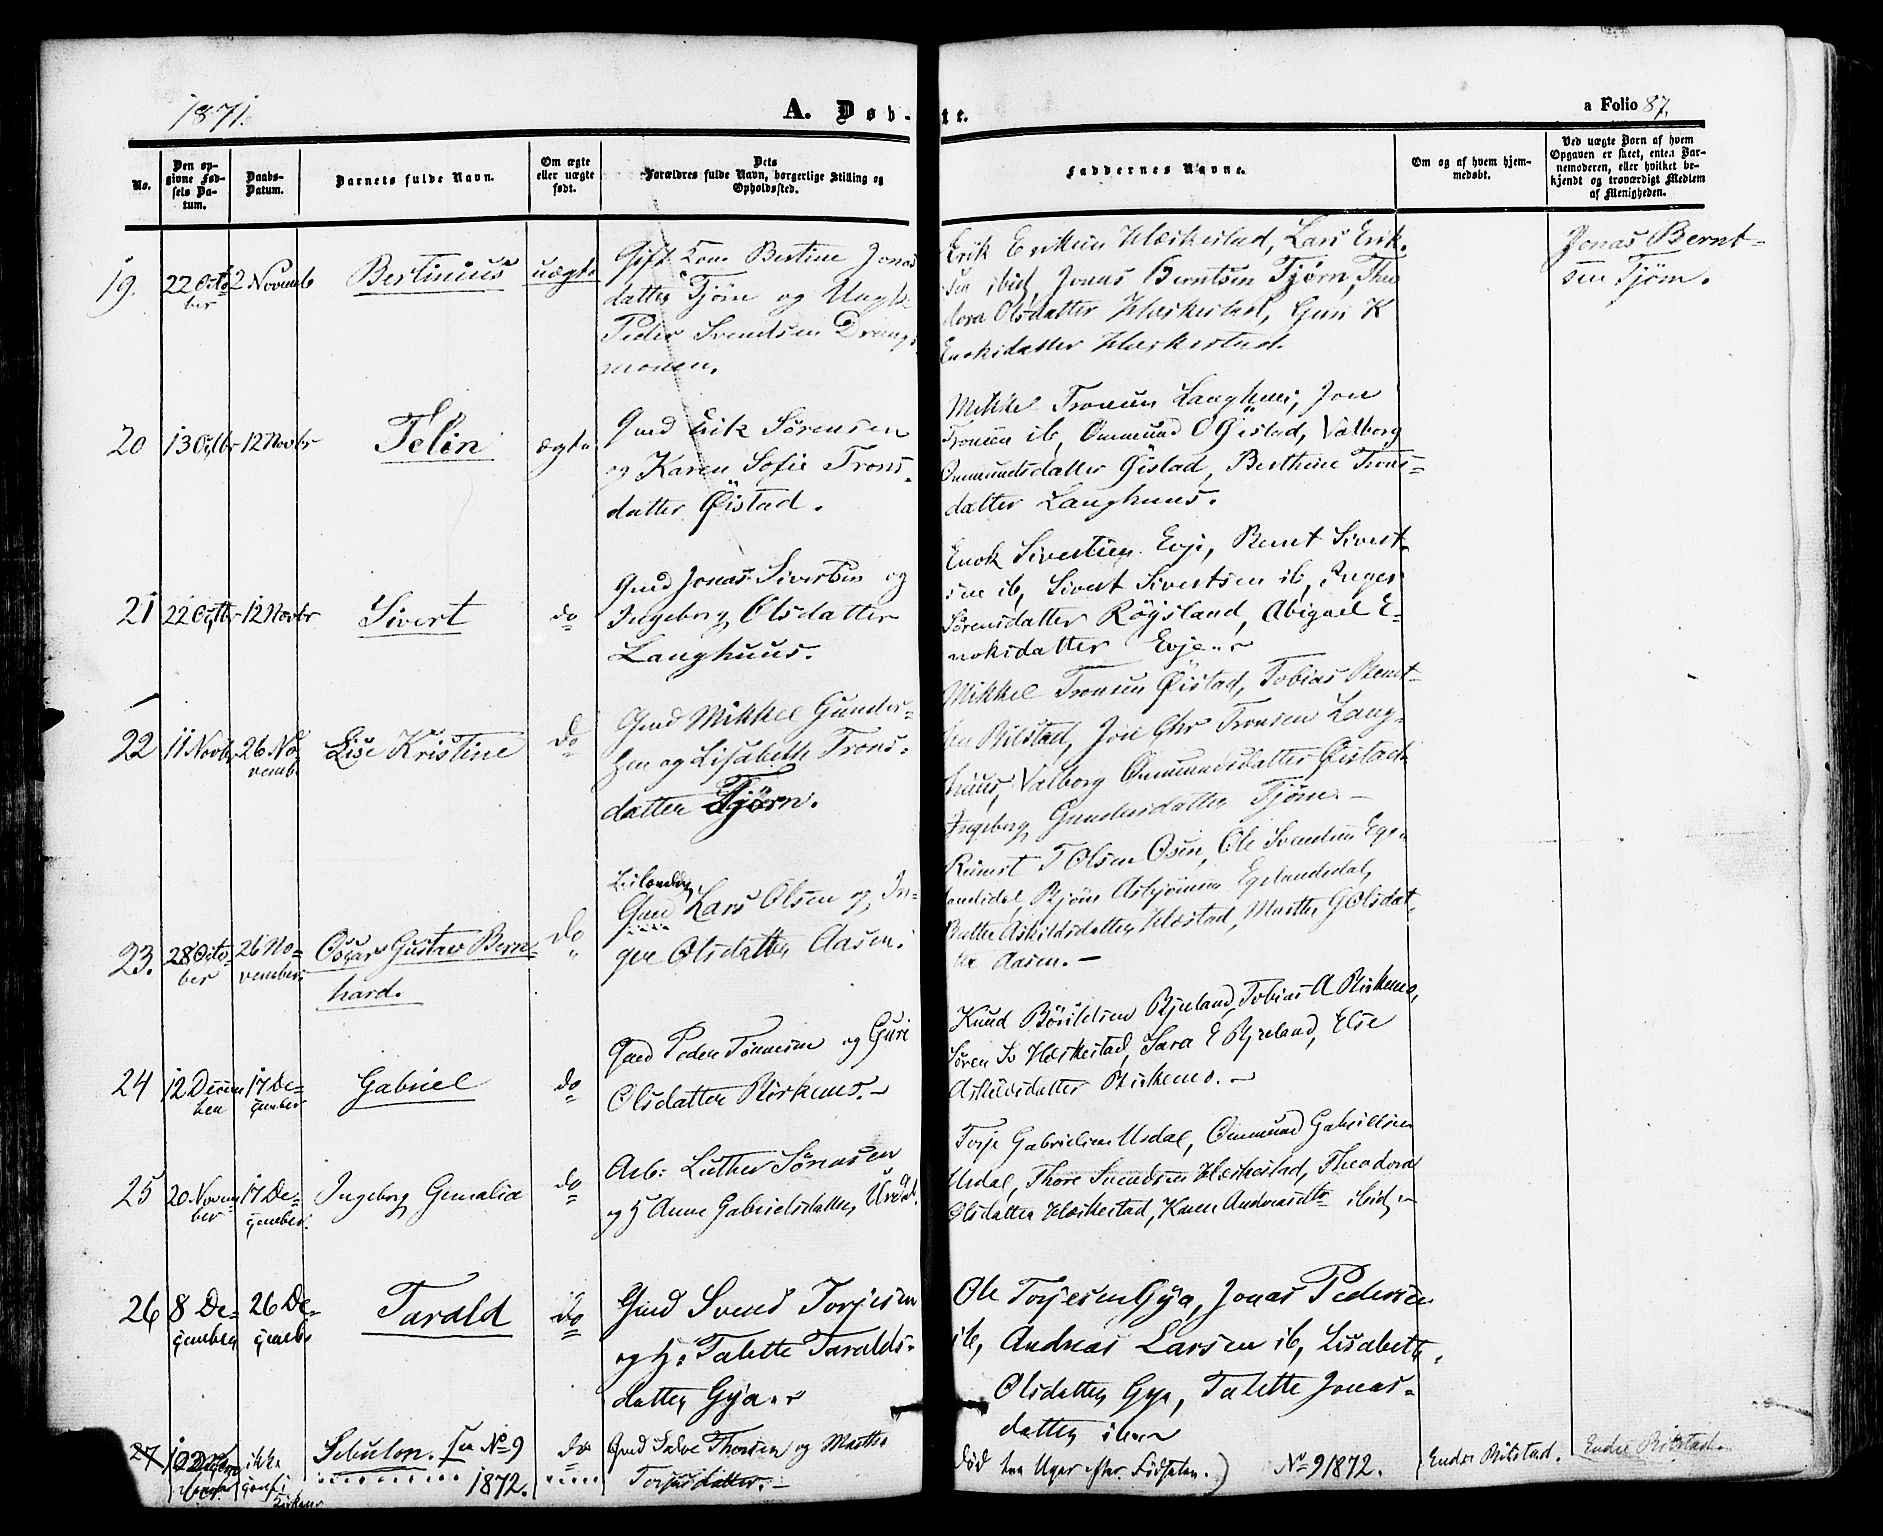 1871.
A. Døb-te.
a Folio 87.
No.
Den opgivne Fødsels Datum.
Daabs-Datum.
Barnets fulde Navn.
Om ægte eller uægte født.
Dets Forældres fulde Navn, borgerlige Stilling og Opholdssted.
Faddernes Navne.
Om og af hvem hjemmedøbt.
Ved uægte Born af hvem Opgaven er skeet, enten Barnemoderen, eller hvilket bekjendt og troværdigt Medlem af Menigheden.
19. 22 Octo-ber 2 Novemb Bertinius uægte
Gift Kone Bertine Jonas
datter Tjörn og Ungk.
Peder Svendsen Drangs
monen.
Erik Eriksen Hæskestad, Lars Erik-
sen ibid, Jonas Berntsen Tjørn, Theo
dora Olsdatter Hæskestad, Guri K
Enoksdatter Hæskestad.
Jonas Bernt-
sen Tjörn.
20 13 Octbr 12 Novbr Telin ægte
Gmd Erik Sörensen
og Karen Sofie Trons-
datter Øistad.
Mikkel Tronsen Langhuus, Jon
Tronsen ib, Ommund O Øistad, Valborg
Ommundsdatter Øistad, Berthine Trons-
datter Langhuus.
21 22 Octbr 12 Novbr Sivert do
Gmd Jonas Sivertsen og
Ingeborg Olsdatter
Langhuus.
Enok Sivertsen Evje, Bernt Sivert-
sen ib, Sivert Sivertsen ib, Inger
Sørensdatter Røysland, Abigael E-
noksdatter Evje
22 11 Novbr 26 No-vemb. Lise Kristine do
Gmd Mikkel Gunder-
sen og Lisabeth Trons-
datter Tjørn.
Mikkel Tronsen Øistad, Tobias Bernt-
sen Bilstad, Jon Chr Tronsen Lang-
huus, Valborg Ommundsdatter Øistad
Ingeborg Gundersdatter Tjörn.
23. 28 Octo-ber 26 No-vember Oscar Gustav Bern-
hard. do
Leilænding
Gmd Lars Olsen og In-
ger Olsdatter Aasen.
T Olsen Osen, Ole Svendsen Ege-
landsdal, Björn Asbjörnsen Egelandsdal,
Berthe Askildsdatter Hæstad, Marthe G Olsdat-
ter Aasen.
24 12 Decem-ber 17 De-cember Gabriel do
Gmd Peder Tønnesen og Guri
Olsdatter Birkemo.
Knud Bårildsen Bjuland, Tobias A Birkemo,
Søren Sv Hæskestad, Sara E Bjuland, Else
Askildsdatter Birkemo.
25 20 Novem-ber 17 De-cember. Ingeborg Gemalia do
Arb: Luther Sörensen
og H Anne Gabrielsdatter Ursdal.
Torje Gabrielsen Ursdal, Ommund Gabrielsen
Ursdal, Thore Svendsen Hæskestad, Theodora
Olsdatter Hæskestad, Karen Andreasdtr ibid
26 8 De-cember 26 De-cembr Tarald do
Gmd Svend Torjesen
og H: Talette Taralds-
datter Gya
Ole Torjesen Gya, Jonas Pedersen
ib, Andreas Larsen ib, Lisabeth
Olsdatter Gya, Talette Jonas-
datter ib
27 ikke Sebulon. see No 9
1872. do
Gmd Salve Thorsen og Marthe
Torjusdatter.
død tre Uger efter Fødselen.) No 9 1872.
Endre Bilstad.
Endre Bilstad